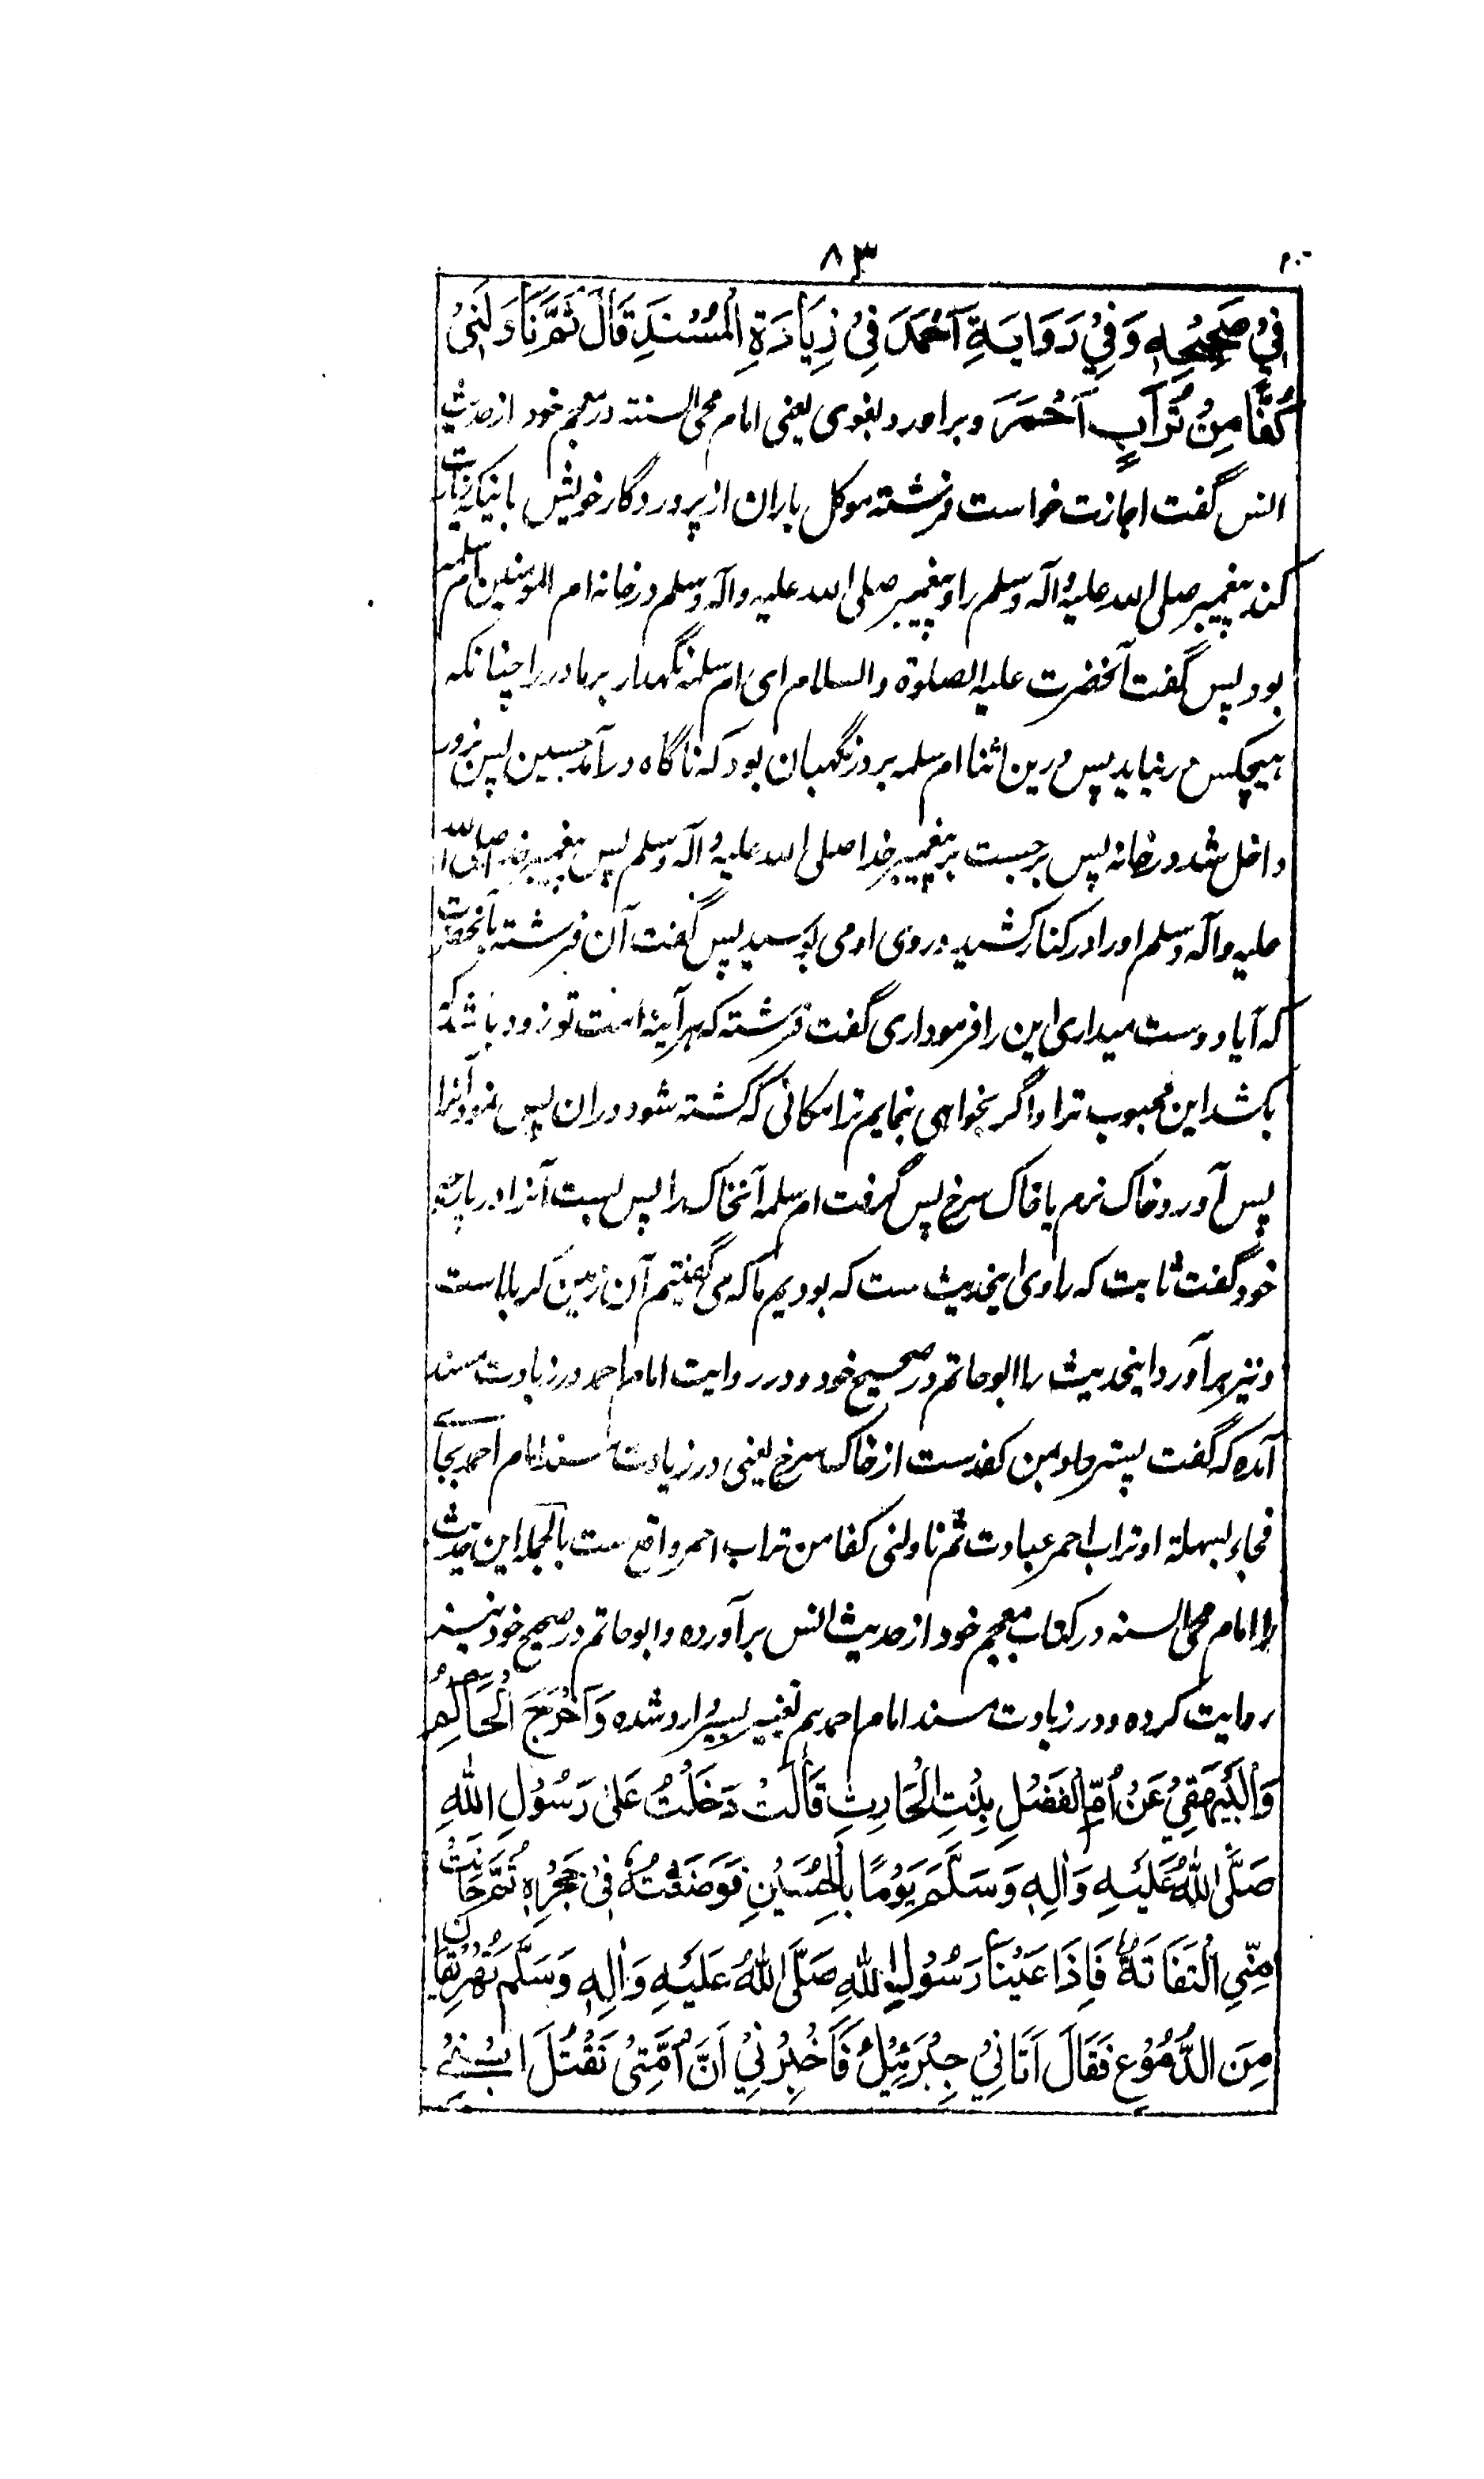 ۸۳
فِيْ صَحِيْحِهٖ وَفِيْ رَوَايَةِ اَحْمَدَ فِيْ زِيَادَةِ الْمُسْنَدِ قَالَ ثُمَّ نَاوَلَنِيْ
كَفًّا مِنْ تُرَابٍ اَحْمَرَ وبرآورد بغوی یعنی امام محی السنته در معجم خود از حدیث
انس گفت اجازت خواست فرشته موکل باران از پروردگار خویش باینکه زیارت
کند پیغمبر صلی الله علیه و آله وسلم را و پیغمبر صلی الله علیه و آله وسلم در خانه ام المومنین ام سلمه
بود پس گفت آنحضرت علیه الصلوة والسلام ای ام سلمه نگهدار بر ما در را چنانکه
هیچکس در نیاید پس درین اثنا ام سلمه بر در نگهبان بود که ناگاه درآمد حسین پس بزور
داخل شد در خانه پس برجست بر پیغمبر خدا صلی الله علیه و آله وسلم پس پیغمبر خدا صلی الله
علیه و آله وسلم او را در کنار کشید و روی او می بوسید پس گفت آن فرشته بآنحضرت
که آیا دوست میداری این را فرمود آری گفت فرشته که هر آینه امت تو زود باشد که
بکشد این محبوب ترا و اگر بخواهی بنمایم ترا مکانی که کشته شود در ان پس نمود آنرا
پس آورد خاک نرم یا خاک سرخ پس گرفت ام سلمه آنخاک را پس ببست آنرا در پارچه
خود گفت ثابت که راوی اینحدیث ست که بودیم ما که می گفتیم آن زمین کربلا است
و نیز برآورد اینحدیث را ابوحاتم در صحیح خود و در روایت امام احمد در زیادت مسند
آمده که گفت پستر داد بمن کفدست از خاک سرخ یعنی در زیادت مسند امام احمد بجای
فجاء بسهلة او تراب احمر عبادت ثم ناولنی کفا من تراب احمر واقع ست بالجمله این حدیث
را امام محی السنه در کتاب معجم خود از حدیث انس برآورده و ابوحاتم در صحیح خود نیز
روایت کرده و در زیادت مسند امام احمد بهم تغییر یسیر وارد شده وَاَخْرَجَ الْحَاكِمُ
وَالْبَيْهَقِيُّ عَنْ اُمِّ الْفَضْلِ بِنْتِ الْحَارِثِ قَالَتْ دَخَلْتُ عَلٰى رَسُوْلِ اللّٰهِ
صَلَّى اللّٰهُ عَلَيْهِ وَاٰلِهٖ وَسَلَّمَ يَوْمًا بِالْحُسَيْنِ فَوَضَعْتُهٗ فِيْ حَجْرِهٖ ثُمَّ حَانَتْ
مِنِّي الْتِفَاتَةٌ فَاِذَا عَيْنَا رَسُوْلِ اللّٰهِ صَلَّى اللّٰهُ عَلَيْهِ وَاٰلِهٖ وَسَلَّمَ تُهْرِيْقَانِ
مِنَ الدُّمُوْعِ فَقَالَ اَتَانِيْ جِبْرَئِيْلُ فَاَخْبَرَنِيْ اَنَّ اُمَّتِيْ تَقْتُلُ ابْنِيْ